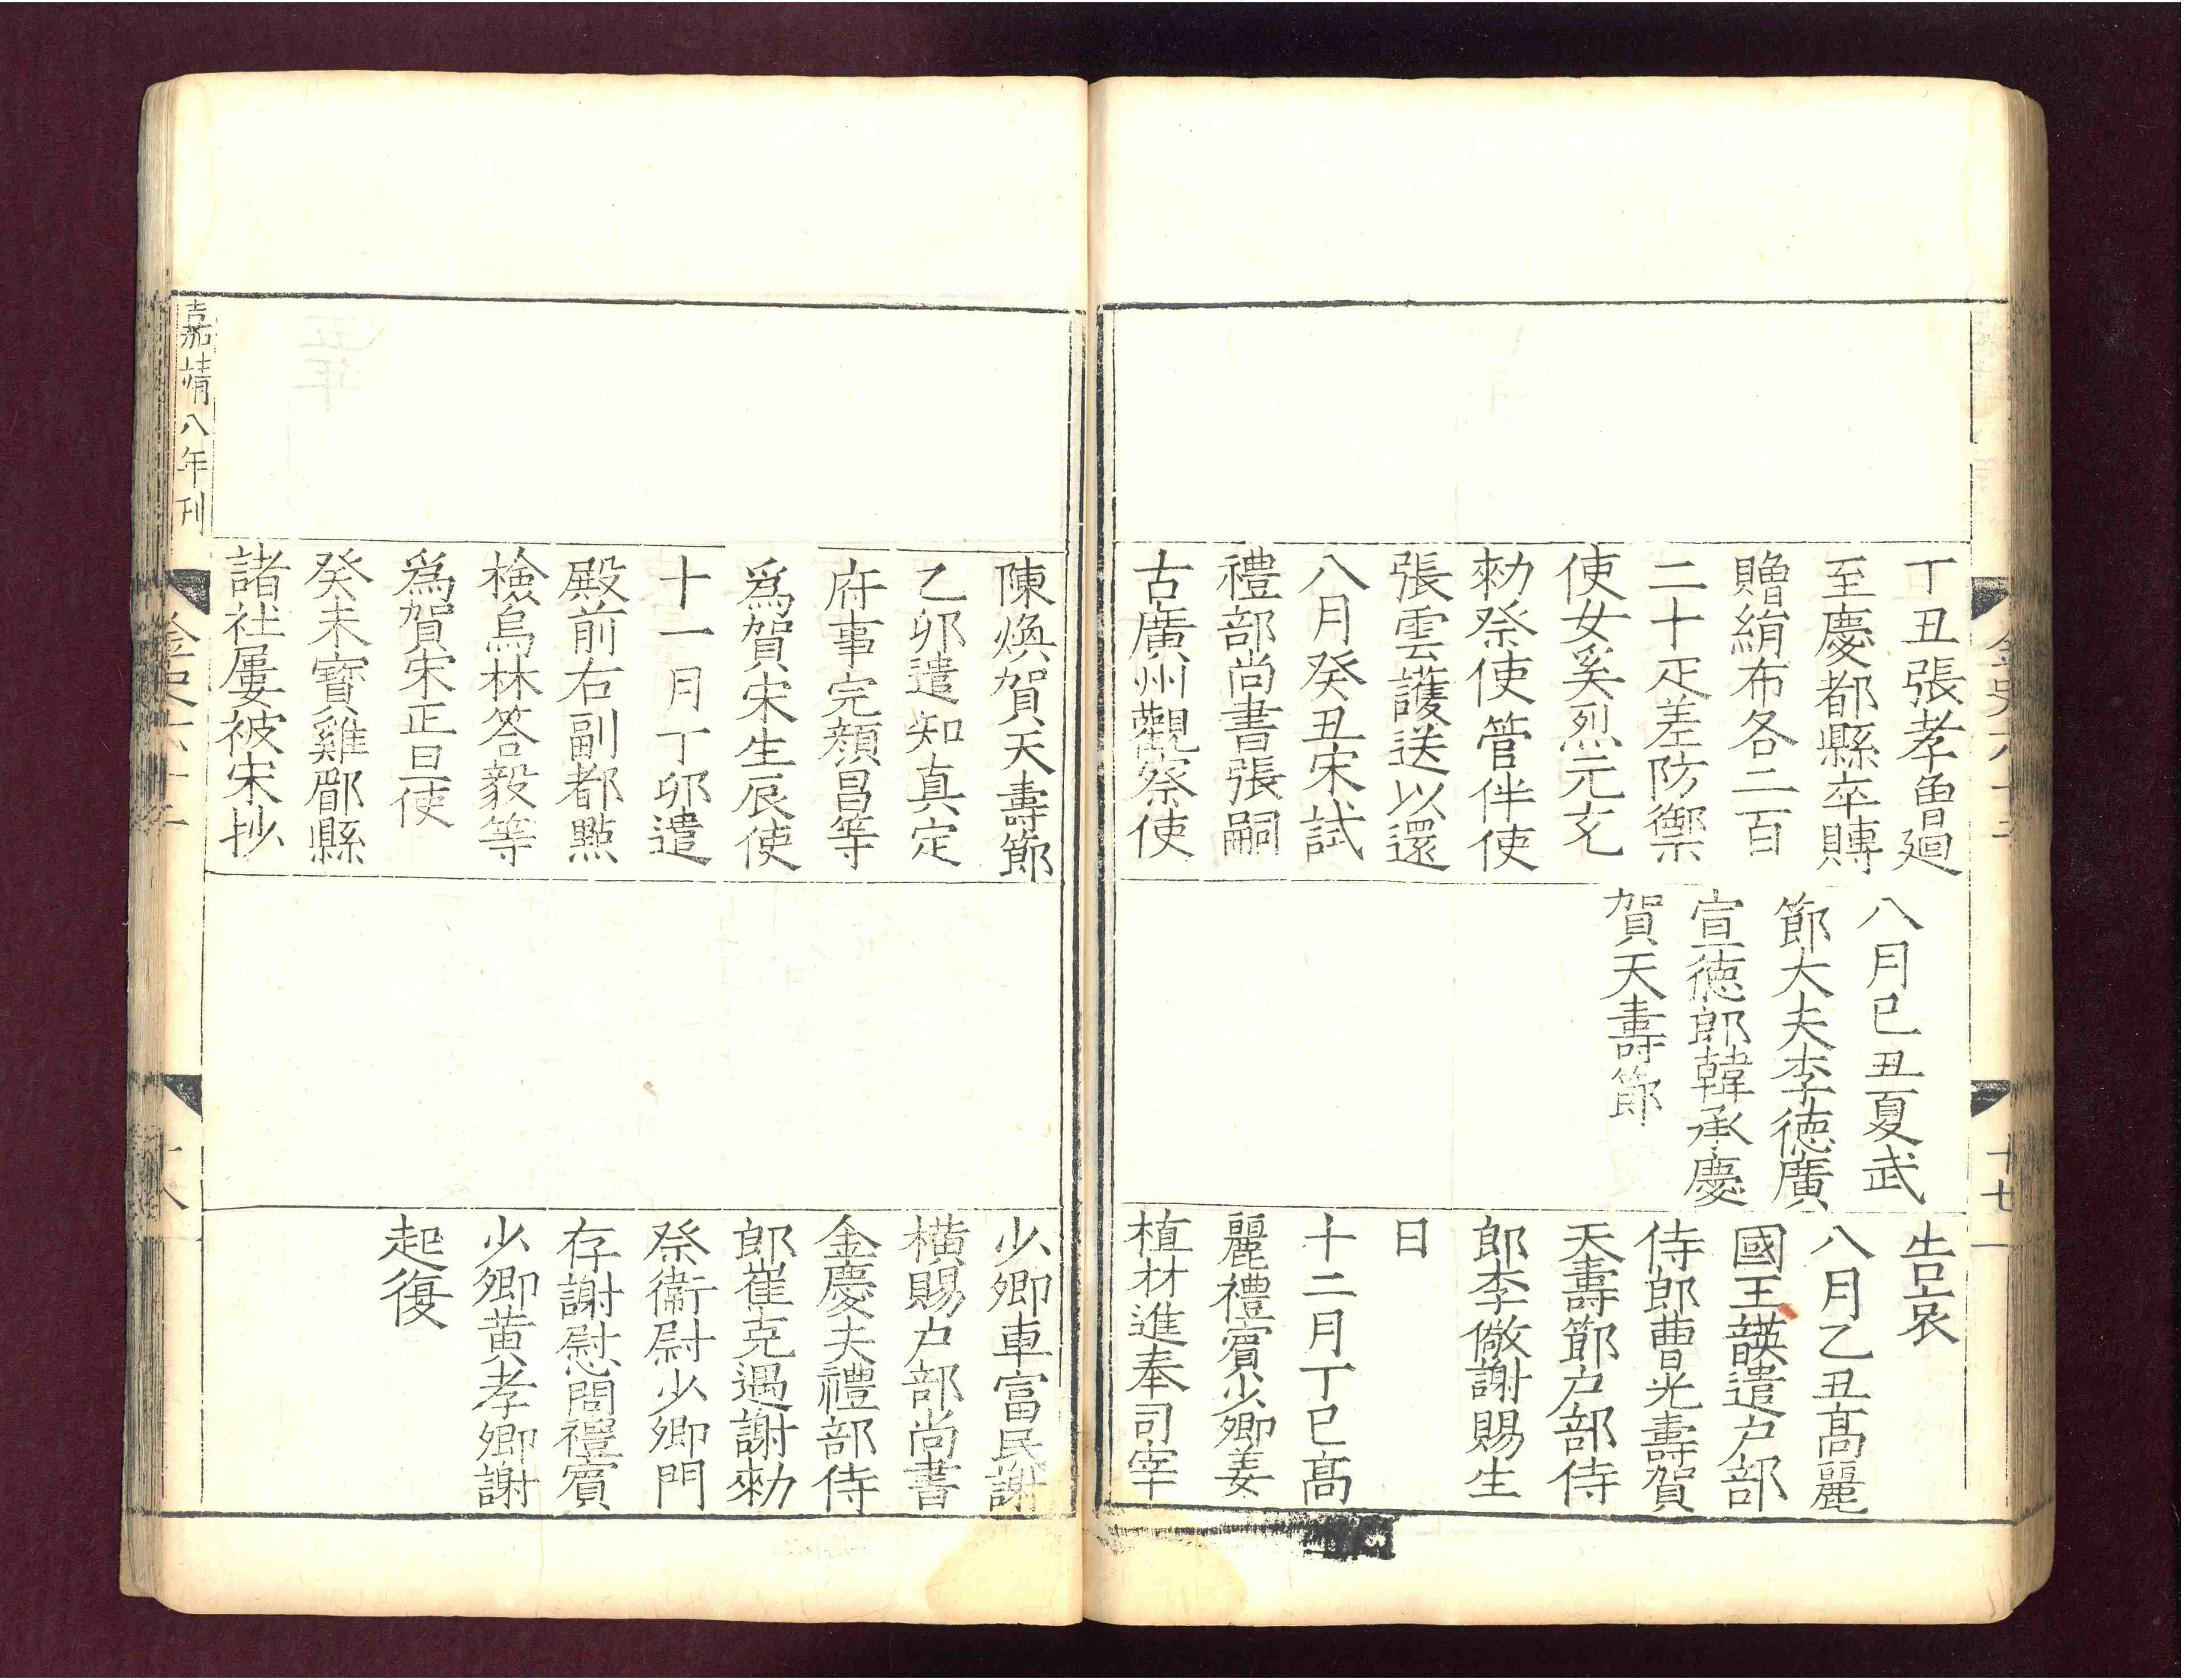 丁丑張孝曾廻
至慶都縣卒賻
贈絹布各二百
二十疋差防禦
使女奚烈元充
勑祭使管伴使
張雲護送以還
八月癸丑宋試
禮部尚書張嗣
古廣州觀察使
八月己丑夏武
節大夫李徳廣
宣徳郎韓承慶
賀天壽節
告哀
八月乙丑髙麗
國王韺遣户部
侍郎曹光壽賀
天壽節户部侍
郎李儆謝賜生
日
十二月丁巳髙
麗禮賓少卿姜
植材進奉司宰
陳煥賀天壽節
乙卯遣知真定
府事完顔昌等
爲賀宋生辰使
十一月丁卯遣
殿前右副都㸃
檢烏林荅毅等
爲賀宋正旦使
癸未寳雞郿縣
諸社屢被宋抄
少卿車富民謝
横賜户部尚書
金慶夫禮部侍
郎崔克遇謝勑
祭衞尉少卿門
存謝慰問禮賓
少卿黄孝卿謝
起復
嘉靖八年刊
金史六十二
十八